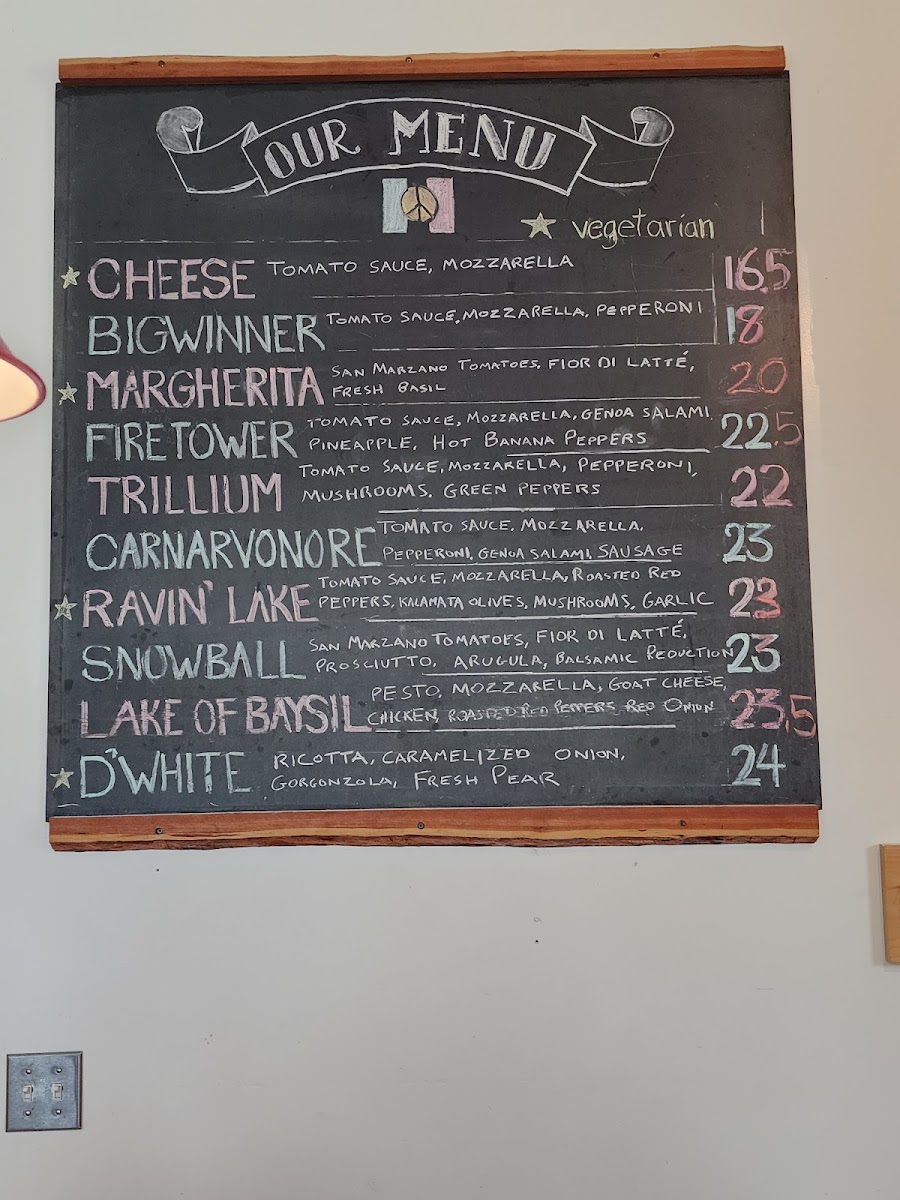 OUR MENU
vegetarian
CHEESE TOMATO SAUCE, MOZZARELLA 16.5
BIGWINNER TOMATO SAUCE, MOZZARELLA, PEPPERONI 18
MARGHERITA SAN MARZANO TOMATOES, FIOR DI LATTÉ, 20
FRESH BASIL
FIRETOWER TOMATO SAUCE, MOZZARELLA, GENOA SALAMI, 22.5
PINEAPPLE, HOT BANANA PEPPERS
TRILLIUM TOMATO SAUCE, MOZZARELLA, PEPPERONI, 22
MUSHROOMS, GREEN PEPPERS
CARNARVONORE TOMATO SAUCE, MOZZARELLA, 23
PEPPERONI, GENOA SALAMI, SAUSAGE
RAVIN' LAKE TOMATO SAUCE, MOZZARELLA, ROASTED RED 23
PEPPERS, KALAMATA OLIVES, MUSHROOMS, GARLIC
SNOWBALL SAN MARZANO TOMATOES, FIOR DI LATTÉ, 23
PROSCIUTTO, ARUGULA, BALSAMIC REDUCTION
LAKE OF BAYSIL PESTO, MOZZARELLA, GOAT CHEESE, 23.5
CHICKEN, ROASTED RED PEPPERS, RED ONION
D'WHITE RICOTTA, CARAMELIZED ONION, 24
GORGONZOLA, FRESH PEAR